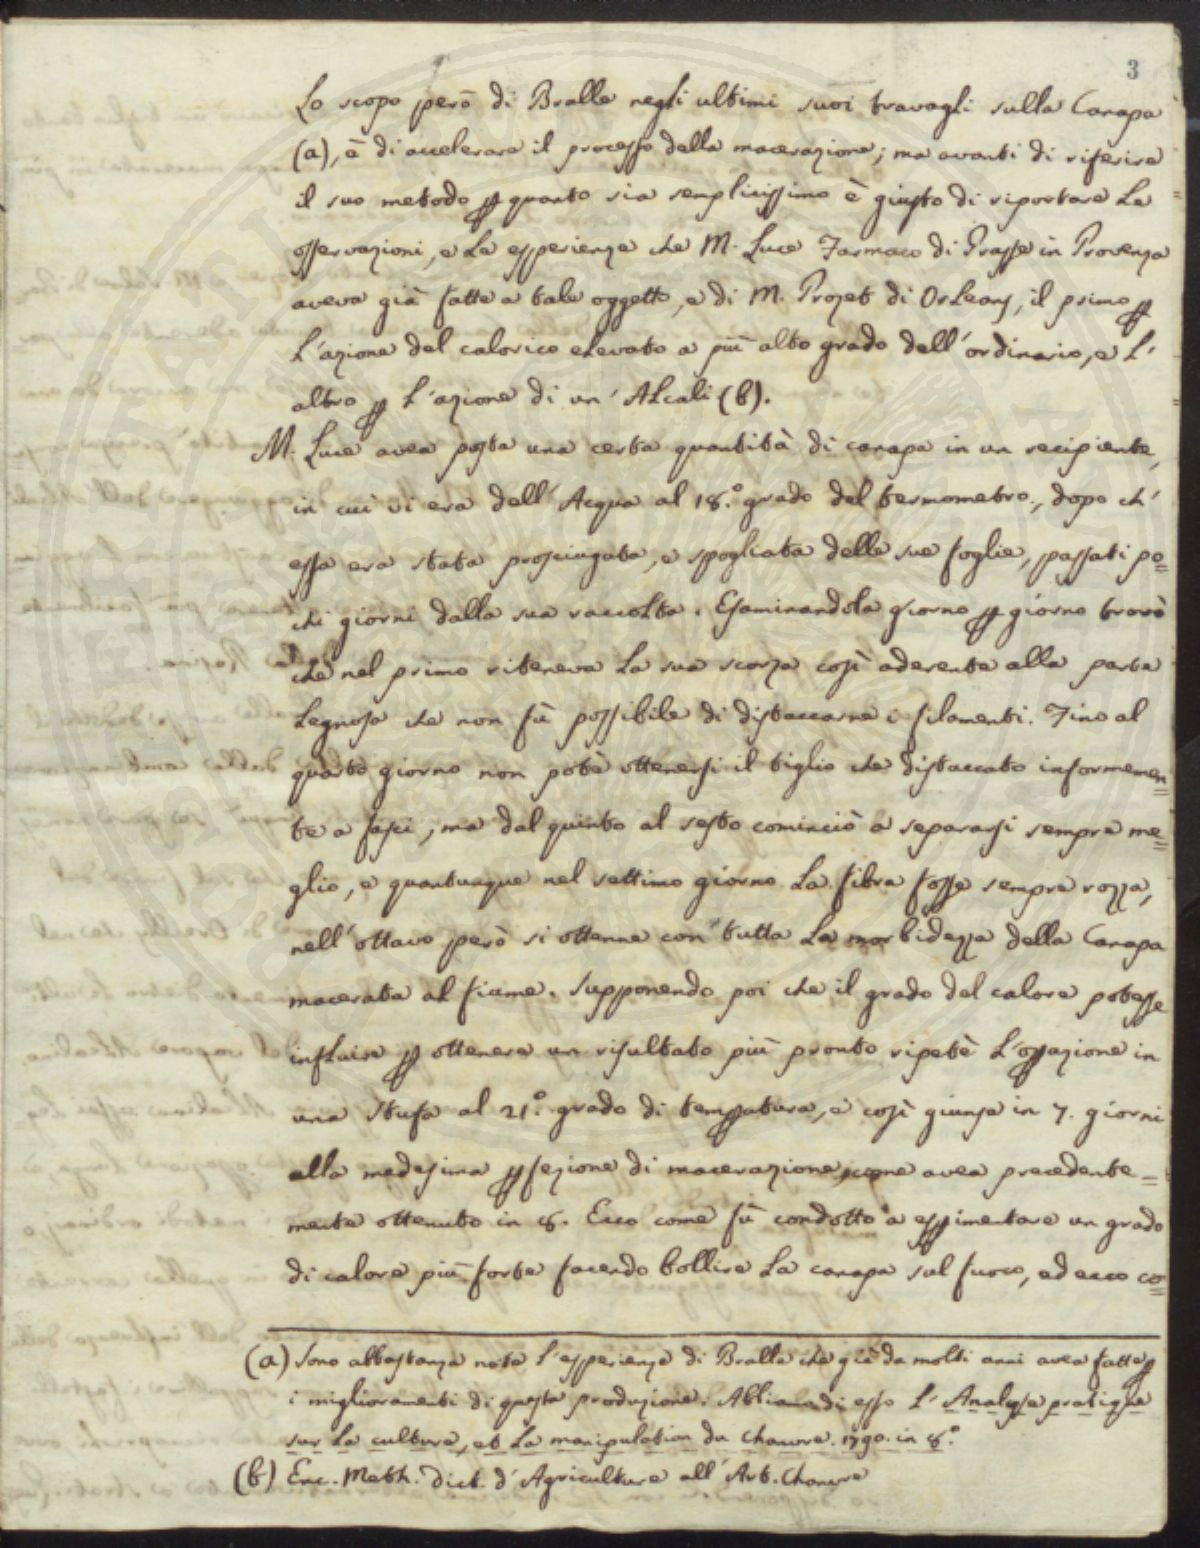 3
Lo scopo però di Bralle negli ultimi suoi travagli sulla Canapa
(a), è di accelerare il processo della macerazione; ma avanti di riferire
il suo metodo ꝑ quanto sia semplicissimo è giusto di riportare le
osservazioni, e le esperienze che M. Luce Farmaco di Grasse in Provenza
aveva già fatte a tale oggetto, e di M. Prozet di Orleans, il primo ꝑ
l'azione del calorico elevato a più alto grado dell'ordinario, e l'
altro ꝑ l'azione di un' Alcali (b).
M. Luce avea posta una certa quantità di canapa in un recipiente,
in cui vi era dell'Acqua al 18.° grado del termometro, dopo ch'
essa era stata prosciugata, e spogliata delle sue foglie, passati po=
chi giorni dalla sua raccolta. Esaminandola giorno ꝑ giorno trovò
che nel primo riteneva la sua scorza così aderente alla parte
legnosa che non fù possibile di distaccarne i filamenti. Fino al
quarto giorno non potè ottenersi il tiglio che distaccato informemen=
te a fasci, ma dal quinto al sesto cominciò a separarsi sempre me=
glio, e quantunque nel settimo giorno la fibra fosse sempre rozza,
nell'ottavo però si ottenne con tutta la morbidezza della Canapa
macerata al fiume. Supponendo poi che il grado del calore potesse
influire ꝑ ottenere un risultato più pronto ripetè l'oꝑazione in
una stufa al 21.° grado di temꝑatura, e così giunse in 7. giorni
alla medesima ꝑfezione di macerazione, come avea precedente=
mente ottenuto in 8. Ecco come fù condotto a esꝑimentare un grado
di calore più forte facendo bollire la canapa sul fuoco, ed ecco co=
(a) Sono abbastanza note l'esperienze di Bralle che già da molti anni avea fatte ꝑ
i miglioramenti di questa produzione. Abbiamo di esso l'Analyse pratique
sur la culture, et la manipulation du chanvre. 1790. in 8.°
(b) Enc. Meth. dict. d'Agriculture all'Art. Chanvre